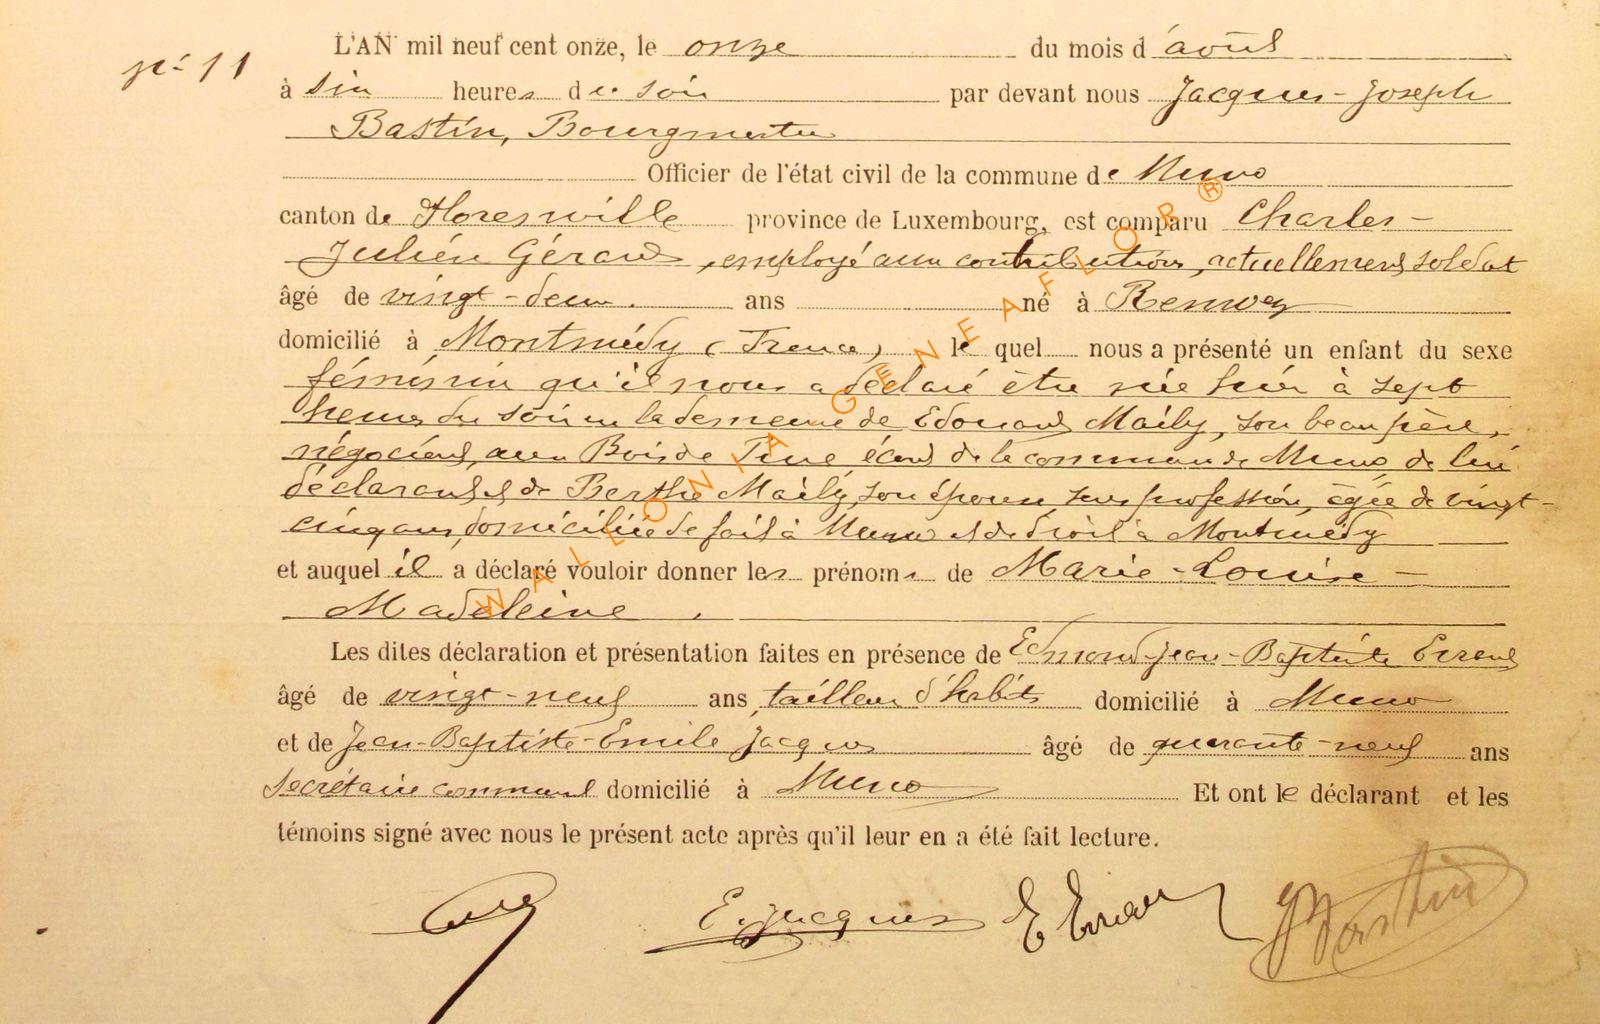 L'AN mil neuf cent onze, le onze du mois d'août
nº 11
à six heures du soir par devant nous Jacques-Joseph
Bastin, Bourgmestre
Officier de l'état civil de la commune de Muno
canton de Florenville province de Luxembourg, est comparu Charles-
Julien Gérard, employé aux contributions, actuellement soldat
âgé de vingt-deux ans né à Renwez
domicilié à Montmédy (France) le quel nous a présenté un enfant du sexe
féminin qu'il nous a déclaré être née hier à sept
heures du soir en la demeure de Edouard Maily, son beau père,
négociant, au Bois de écart de la commune de Muno, de lui
déclarant et de Berthe Maily, son épouse, sans profession, âgée de vingt-
cinq ans, domiciliée de fait à Muno et de droit à Montmédy
et auquel il a déclaré vouloir donner les prénoms de Marie-Louise-
Madeleine.
Les dites déclaration et présentation faites en présence de Edmond-Jean-Baptiste Errard
âgé de vingt-neuf ans, tailleur d'habits domicilié à Muno
et de Jean-Baptiste-Emile Jacques âgé de quarante-neuf ans
secrétaire communal domicilié à Muno Et ont le déclarant et les
témoins signé avec nous le présent acte après qu'il leur en a été fait lecture.
E. Jacques E Errard JJBastin
WALLONIA GENEAFLOR ®